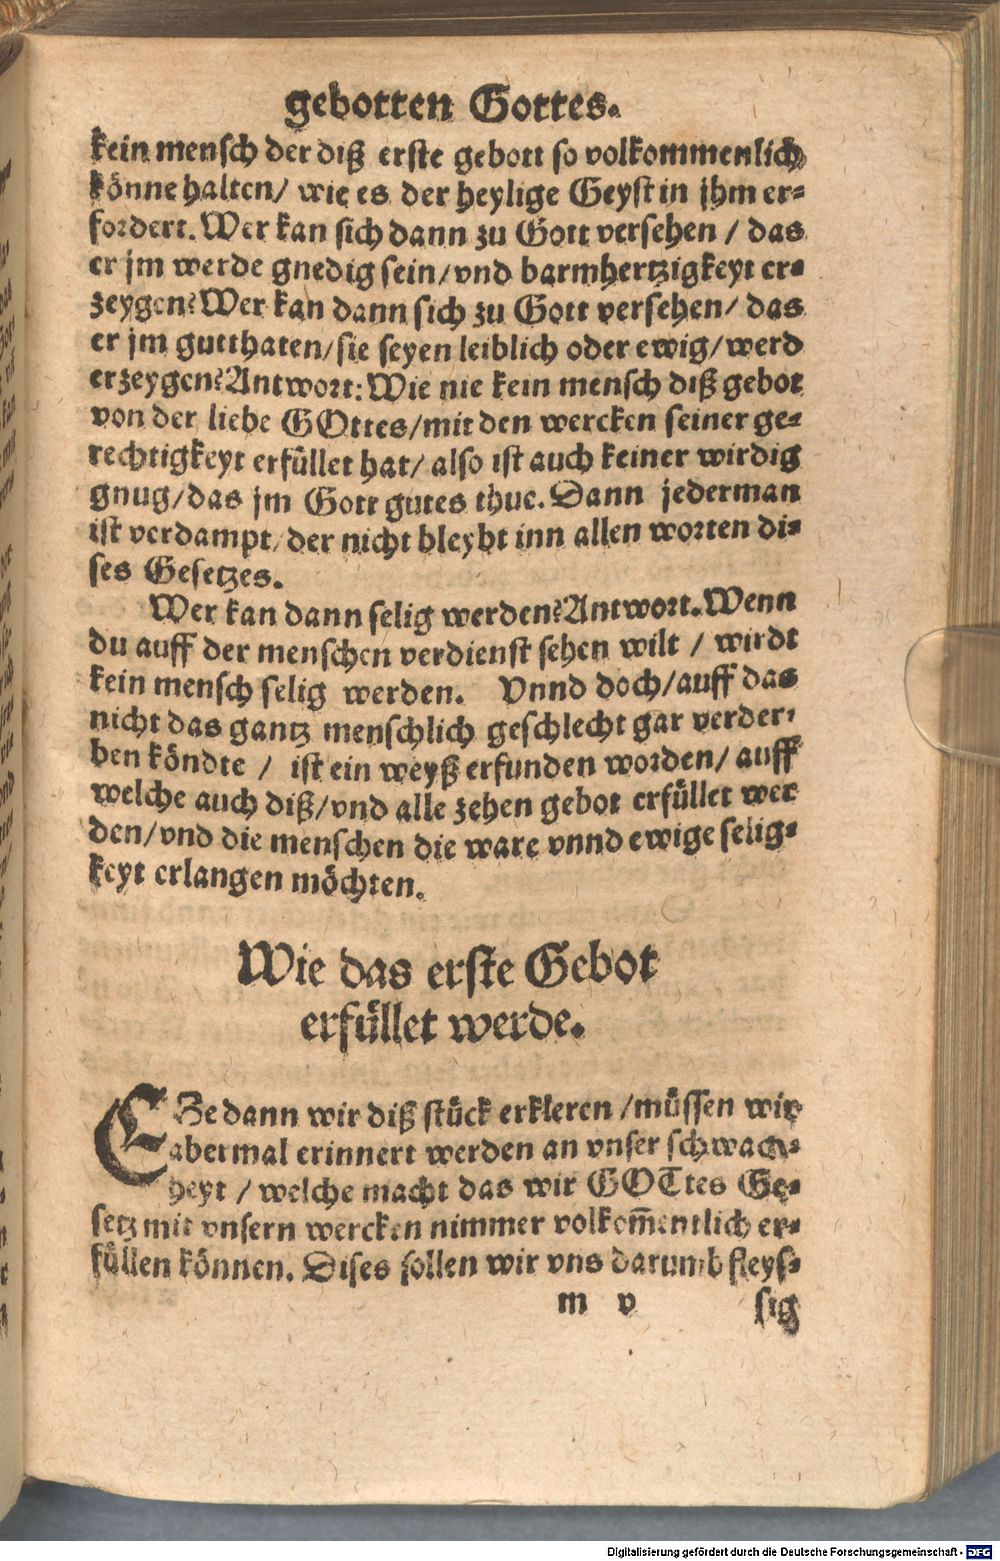 gebotten Gottes.
kein mensch der diß erste gebott so volkommenlich
könne halten/ wie es der heylige Geyst in jhm er-
fordert. Wer kan sich dann zu Gott versehen / das
er jm werde gnedig sein/vnd barmhertzigkeyt er-
zeygen? Wer kan dann sich zu Gott versehen/ das
er jm gutthaten/sie seyen leiblich oder ewig/werd
erzeygen? Antwort: Wie nie kein mensch diß gebot
von der liebe GOttes/mit den wercken seiner ge-
rechtigkeyt erfüllet hat/ also ist auch keiner wirdig
gnug/das jm Gott gutes thue. Dann jederman
ist verdampt/der nicht bleybt inn allen worten di-
ses Gesetzes.
Wer kan dann selig werden? Antwort. Wenn
du auff der menschen verdienst sehen wilt / wirdt
kein mensch selig werden. Vnnd doch/auff das
nicht das gantz menschlich geschlecht gar verder-
ben köndte / ist ein weyß erfunden worden/ auff
welche auch diß/vnd alle zehen gebot erfüllet wer
den/vnd die menschen die ware vnnd ewige selig-
keyt erlangen möchten.
Wie das erste Gebot
erfüllet werde.
EZe dann wir diß stück erkleren /müssen wir
abermal erinnert werden an vnser schwach-
heyt / welche macht das wir GOTtes Ge-
setz mit vnsern wercken nimmer volkom̄entlich er-
füllen können. Dises sollen wir vns darumb fleys-
m v sig
Digitalisierung gefördert durch die Deutsche Forschungsgemeinschaft - DFG